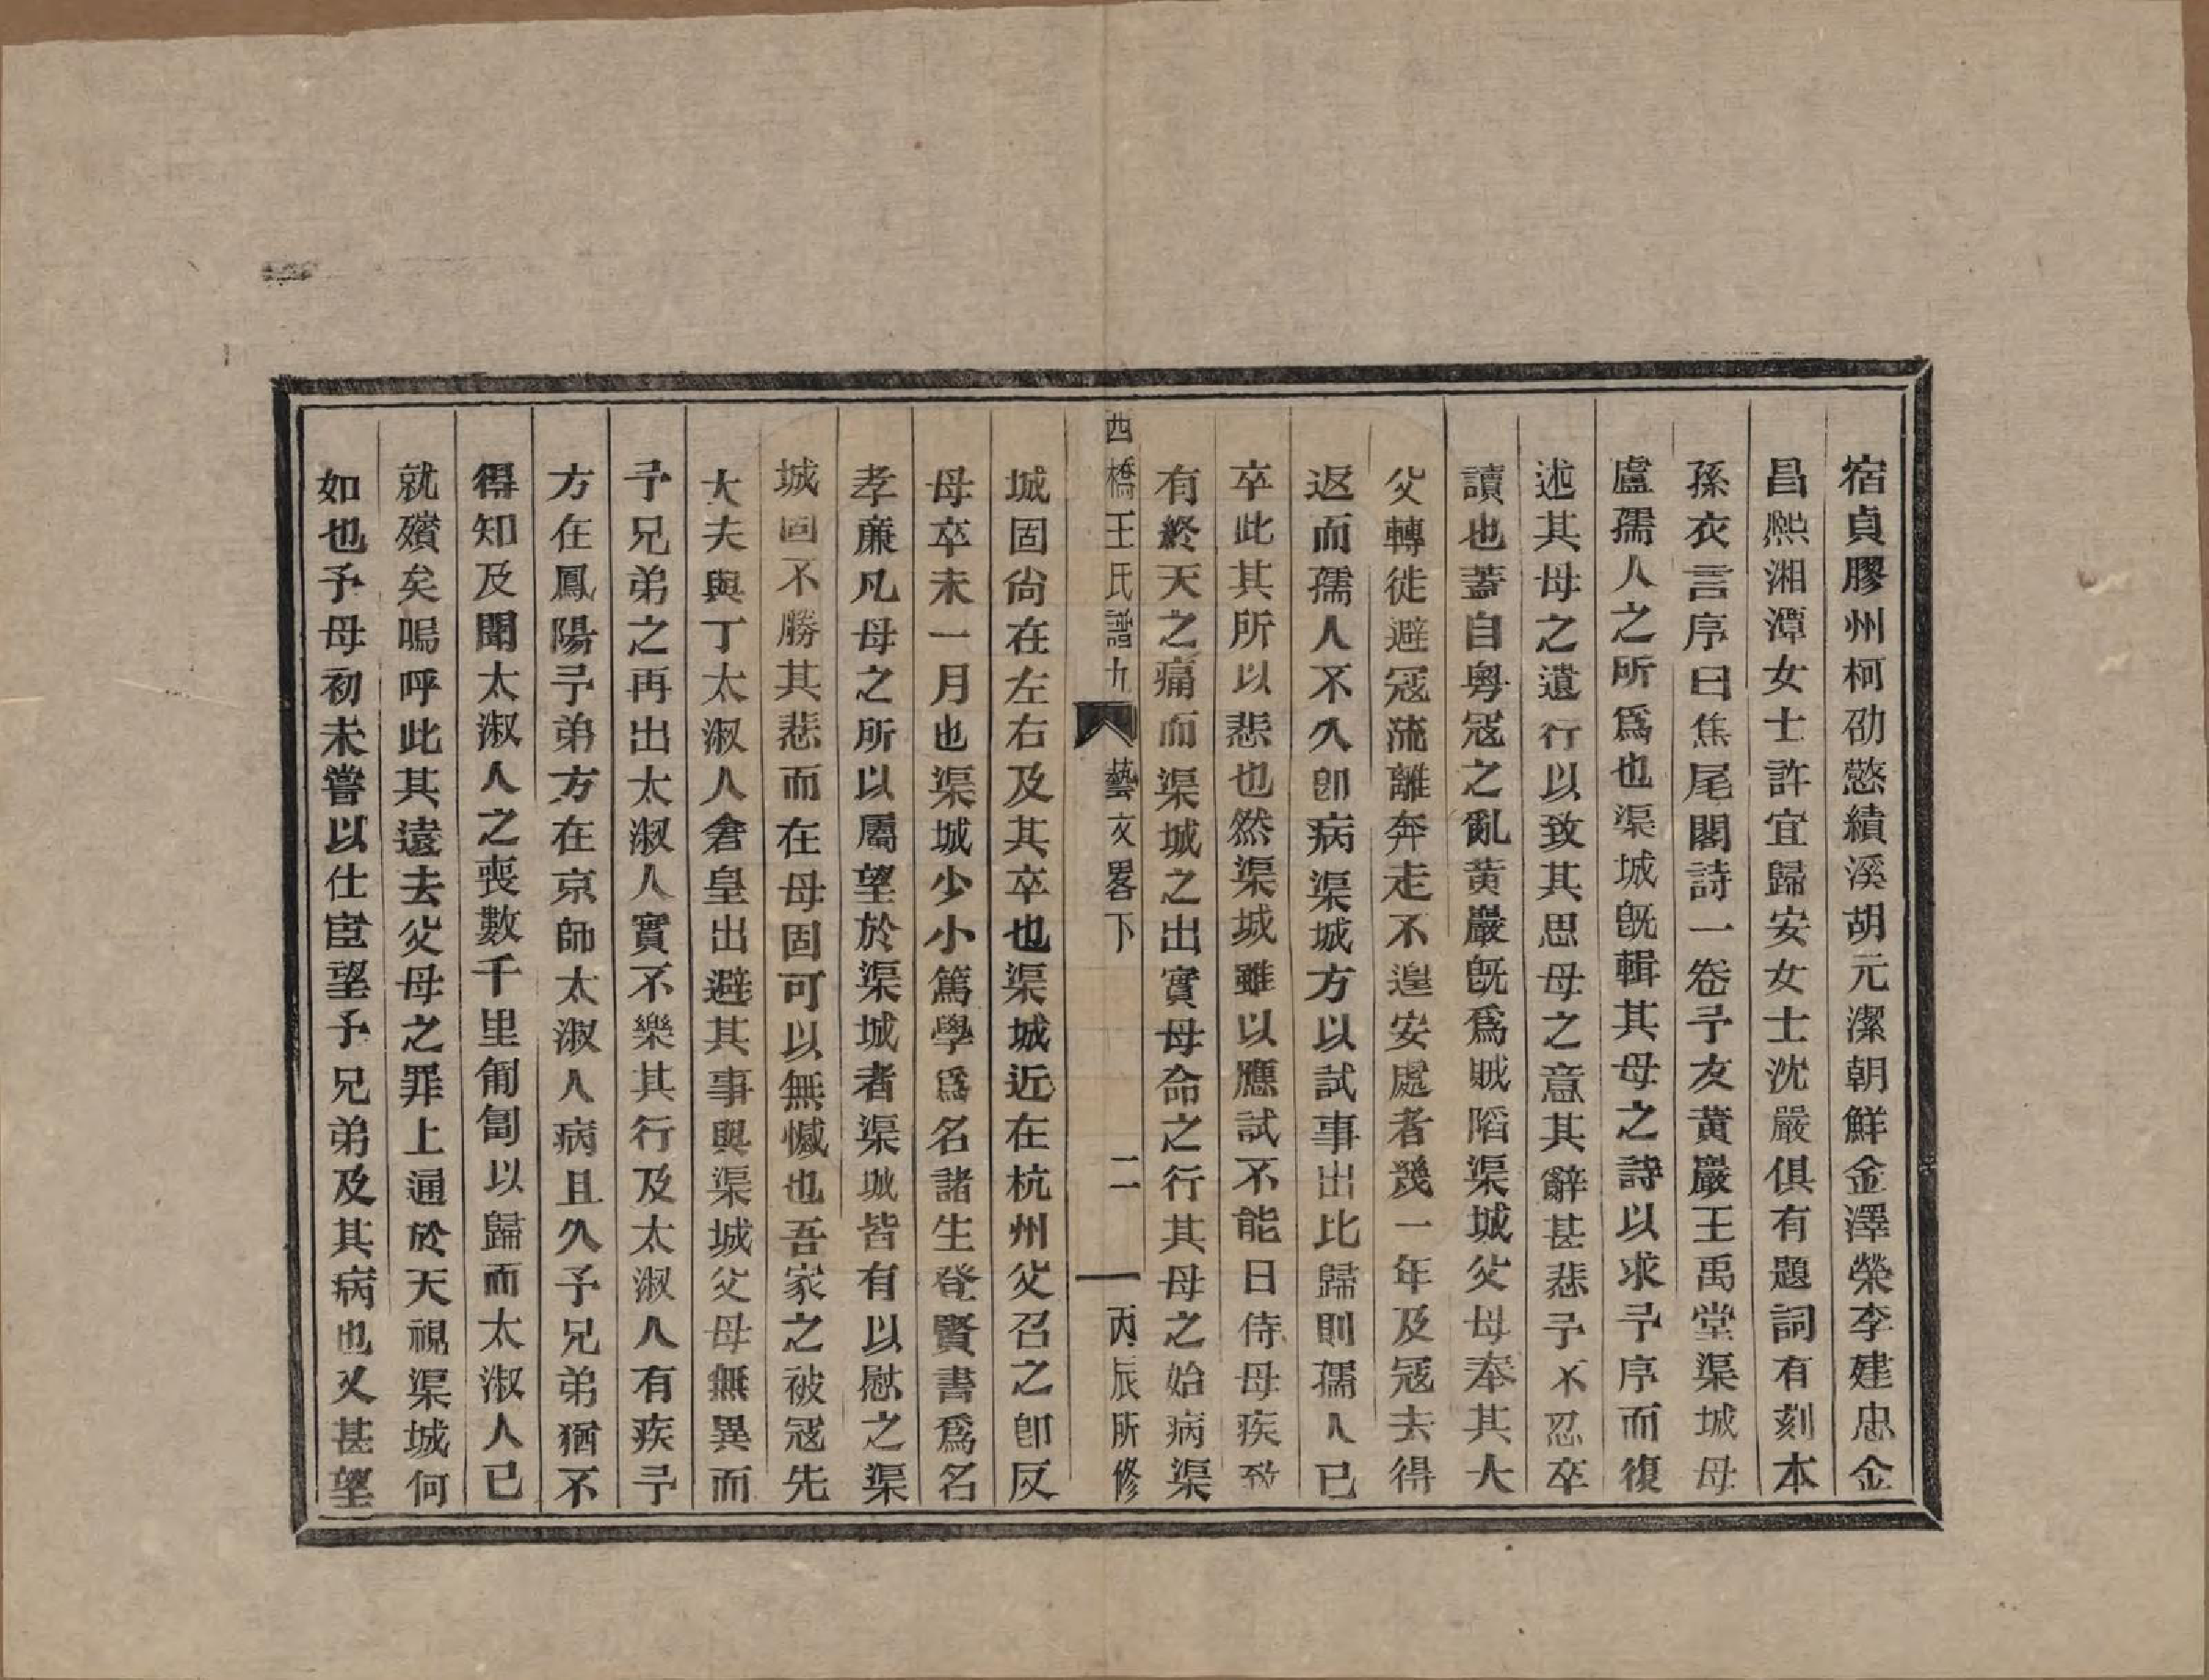 宿貞膠州柯劭慜績溪胡元潔朝鮮金澤榮李建忠金
昌熙湘潭女士許宜歸安女士沈嚴俱有題詞有刻本
孫衣言序曰焦尾閣詩一卷予友黃巖王禹堂渠城母
盧孺人之所爲也渠城旣輯其母之詩以求予序而復
述其母之遺行以致其思母之意其辭甚悲予不忍卒
讀也蓋自粵冦之亂黃巖旣爲賊陷渠城父母奉其大
父轉徙避冦流離奔走不遑安處者幾一年及冦去得
返而孺人不久卽病渠城方以試事出比歸則孺人已
卒此其所以悲也然渠城雖以應試不能日侍母疾致
有終天之痛而渠城之出實母命之行其母之始病渠
西橋王氏譜九 藝文畧下 二 丙辰所修
城固尙在左右及其卒也渠城近在杭州父召之卽反
母卒未一月也渠城少小篤學爲名諸生登賢書爲名
孝廉凡母之所以屬望於渠城者渠城皆有以慰之渠
城固不勝其悲而在母固可以無憾也吾家之被冦先
大夫與丁太淑人倉皇出避其事與渠城父母無異而
予兄弟之再出太淑人實不樂其行及太淑人有疾予
方在鳳陽予弟方在京師太淑人病且久予兄弟猶不
得知及聞太淑人之喪數千里匍匐以歸而太淑人已
就殯矣嗚呼此其遠去父母之罪上通於天視渠城何
如也予母初未嘗以仕宦望予兄弟及其病也又甚望